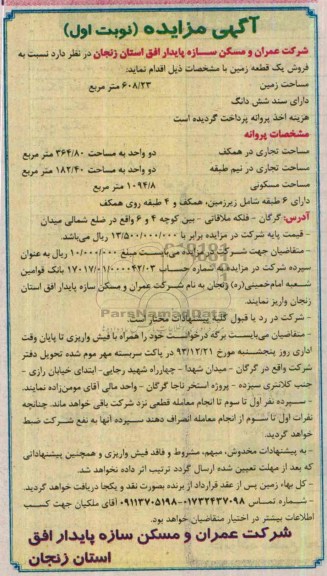 آگهی مزایده (نوبت اول)
شرکت عمران و مسکن سازه پایدار افق استان زنجان در نظر دارد نسبت به
فروش یک قطعه زمین با مشخصات ذیل اقدام نماید:
مساحت زمین ۶۰۸/۲۳ متر مربع
دارای سند شش دانگ
هزینه اخذ پروانه پرداخت گردیده است
مشخصات پروانه
مساحت تجاری در همکف دو واحد به مساحت ۳۶۴/۸۰ متر مربع
مساحت تجاری در نیم طبقه دو واحد به مساحت ۱۸۲/۴۰ متر مربع
مساحت مسکونی ۱۰۹۴/۸ متر مربع
دارای ۶ طبقه شامل زیرزمین، همکف و ۴ طبقه روی همکف
آدرس: گرگان - فلکه ملاقاتی - بین کوچه ۴ و ۶ واقع در ضلع شمالی میدان
- قیمت پایه شرکت در مزایده برابر با ۱۳/۵۰۰/۰۰۰/۰۰۰ ریال می‌باشد.
- متقاضیان جهت شرکت در مزایده می‌بایست مبلغ ۱۰/۰۰۰/۰۰۰ ریال به عنوان
سپرده شرکت در مزایده به شماره حساب ۱۷۰۱۷/۰۱/۰۰۰۰۴۲/۰۳ بانک قوامین
شعبه امام‌خمینی(ره) زنجان به نام شرکت عمران و مسکن سازه پایدار افق استان
زنجان واریز نمایند.
- شرکت در رد یا قبول کلیه پیشنهادات مختار است.
- متقاضیان می‌بایست برگه درخواست خود را همراه با فیش واریزی تا پایان وقت
اداری روز پنجشنبه مورخ ۹۳/۱۲/۲۱ در پاکت سربسته مهر موم شده تحویل دفتر
شرکت واقع در گرگان - میدان شهدا - چهارراه شهید رجایی- ابتدای خیابان رازی -
جنب کلانتری سبزده - پروژه استخر ناجا گرگان - واحد مالی آقای مومن‌زاده نمایند.
- سپرده نفر اول تا سوم تا انجام معامله قطعی نزد شرکت باقی خواهد ماند. چنانچه
نفرات اول تا سوم از انجام معامله انصراف دهند سپرده آنها به نفع شرکت ضبط
خواهد گردید.
- به پیشنهادات مخدوش، مبهم، مشروط و فاقد فیش واریزی و همچنین پیشنهاداتی
که بعد از مهلت تعیین شده ارسال گردد ترتیب اثر داده نخواهد شد.
- کل بهاء زمین پس از عقد قرارداد از برنده بصورت نقد و یکجا دریافت خواهد گردید.
- شماره تماس ۰۱۷۳۲۴۳۷۰۹۸-۰۹۱۱۳۷۰۵۱۹۸ آقای ملکیان جهت کسب
اطلاعات بیشتر در اختیار متقاضیان خواهد بود.
شرکت عمران و مسکن سازه پایدار افق
استان زنجان